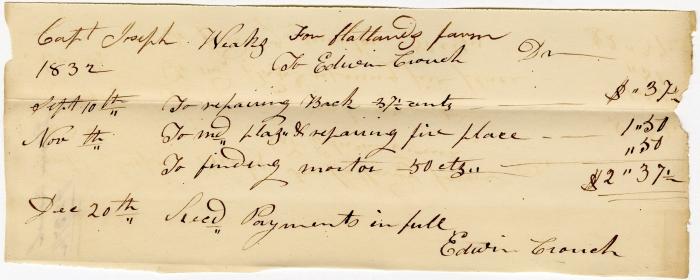 Capt Joseph Weeks For flatlands farm
1832 To Edwin Crouch Dr
Sept 10th To repairing Back 37½ cents $"37½
Nov th To & repairing fire place 1"50
To finding mortor 50 cts "50
$2"37½
Dec 20th Recd Payments in full
Edwin Crouch